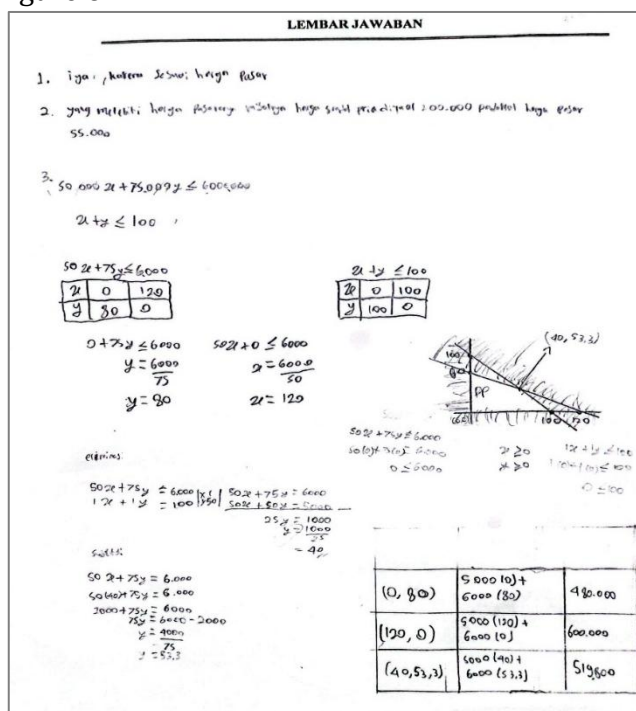 LEMBAR JAWABAN
1. iya, karena sesuai harga pasar
2. yang melebihi harga pasarnya misalnya harga 200.000 padahal harga pasar
55.000
3.
50.000 x + 75.000 y ≤ 6000.000
x + y ≤ 100
50 x + 75 y ≤ 6.000
x 0 120
y 80 0
x + y ≤ 100
x 0 100
y 100 0
0 + 75 y ≤ 6000
y = 6000
75
y = 80
50x + 0 ≤ 6000
x = 6000
50
x = 120
(40, 53,3)
100
80
PP
100 120
50x + 75y ≤ 6.000
0 ≤ 6000
x ≥ 0
y ≥ 0
1x + y ≤ 100
0 ≤ 100
eliminasi
50x + 75y = 6.000 | x1 | 50x + 75y = 6000
1x + 1y = 100 | x50 | 50x + 50y = 5000
25y = 1000
y = 1000
25
= 40
50 x + 75y = 6.000
50(40) + 75y = 6.000
2000 + 75y = 6000
75y = 6000 - 2000
y = 4000
75
y = 53,3
(0, 80) 5000 (0) + 6000 (80) 480.000
(120, 0) 5000 (120) + 6000 (0) 600.000
(40, 53,3) 5000 (40) + 6000 (53,3) 519,800